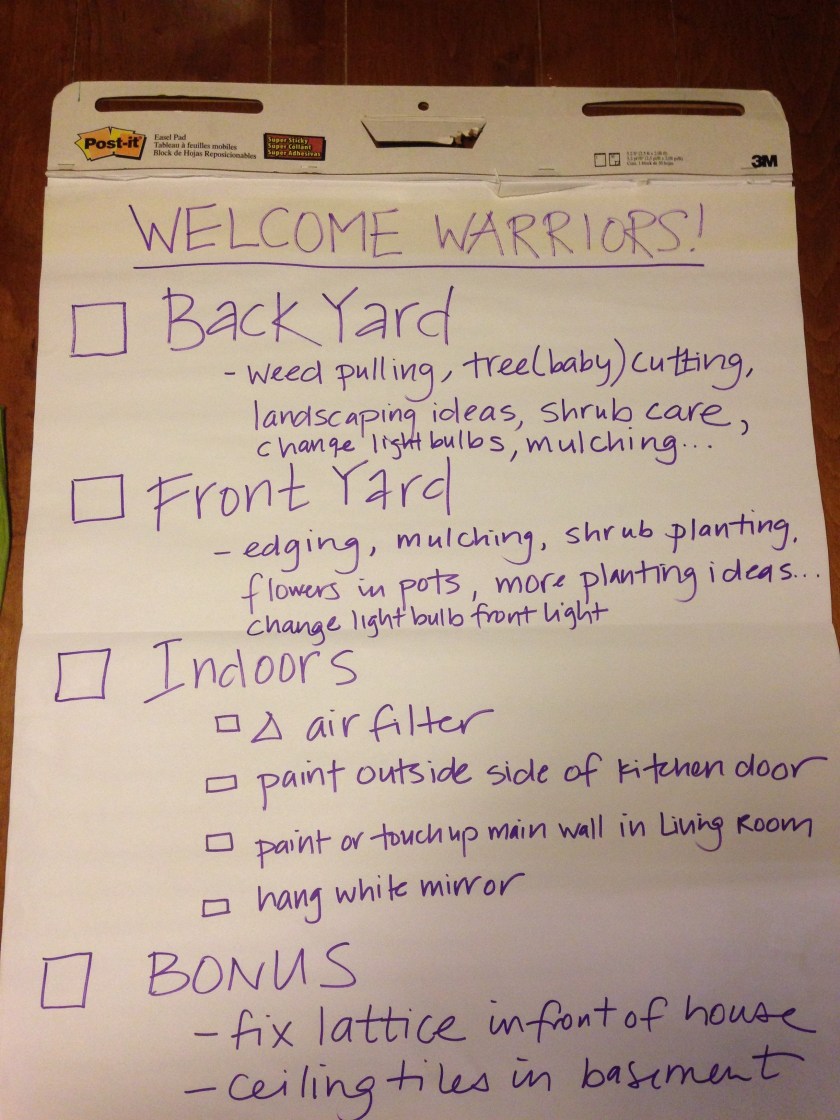 Post-it
Easel Pad
Tableau à feuilles mobiles
Block de Hojas Reposicionables
Super Sticky
Super Collant
Super Adhesivas
3M
WELCOME WARRIORS!
Back Yard
- weed pulling, tree(baby) cutting,
landscaping ideas, shrub care,
change light bulbs, mulching...
Front Yard
- edging, mulching, shrub planting,
flowers in pots, more planting ideas...
change light bulb front light
Indoors
△ air filter
paint outside side of kitchen door
paint or touch up main wall in Living Room
hang white mirror
BONUS
- fix lattice in front of house
- ceiling tiles in basement